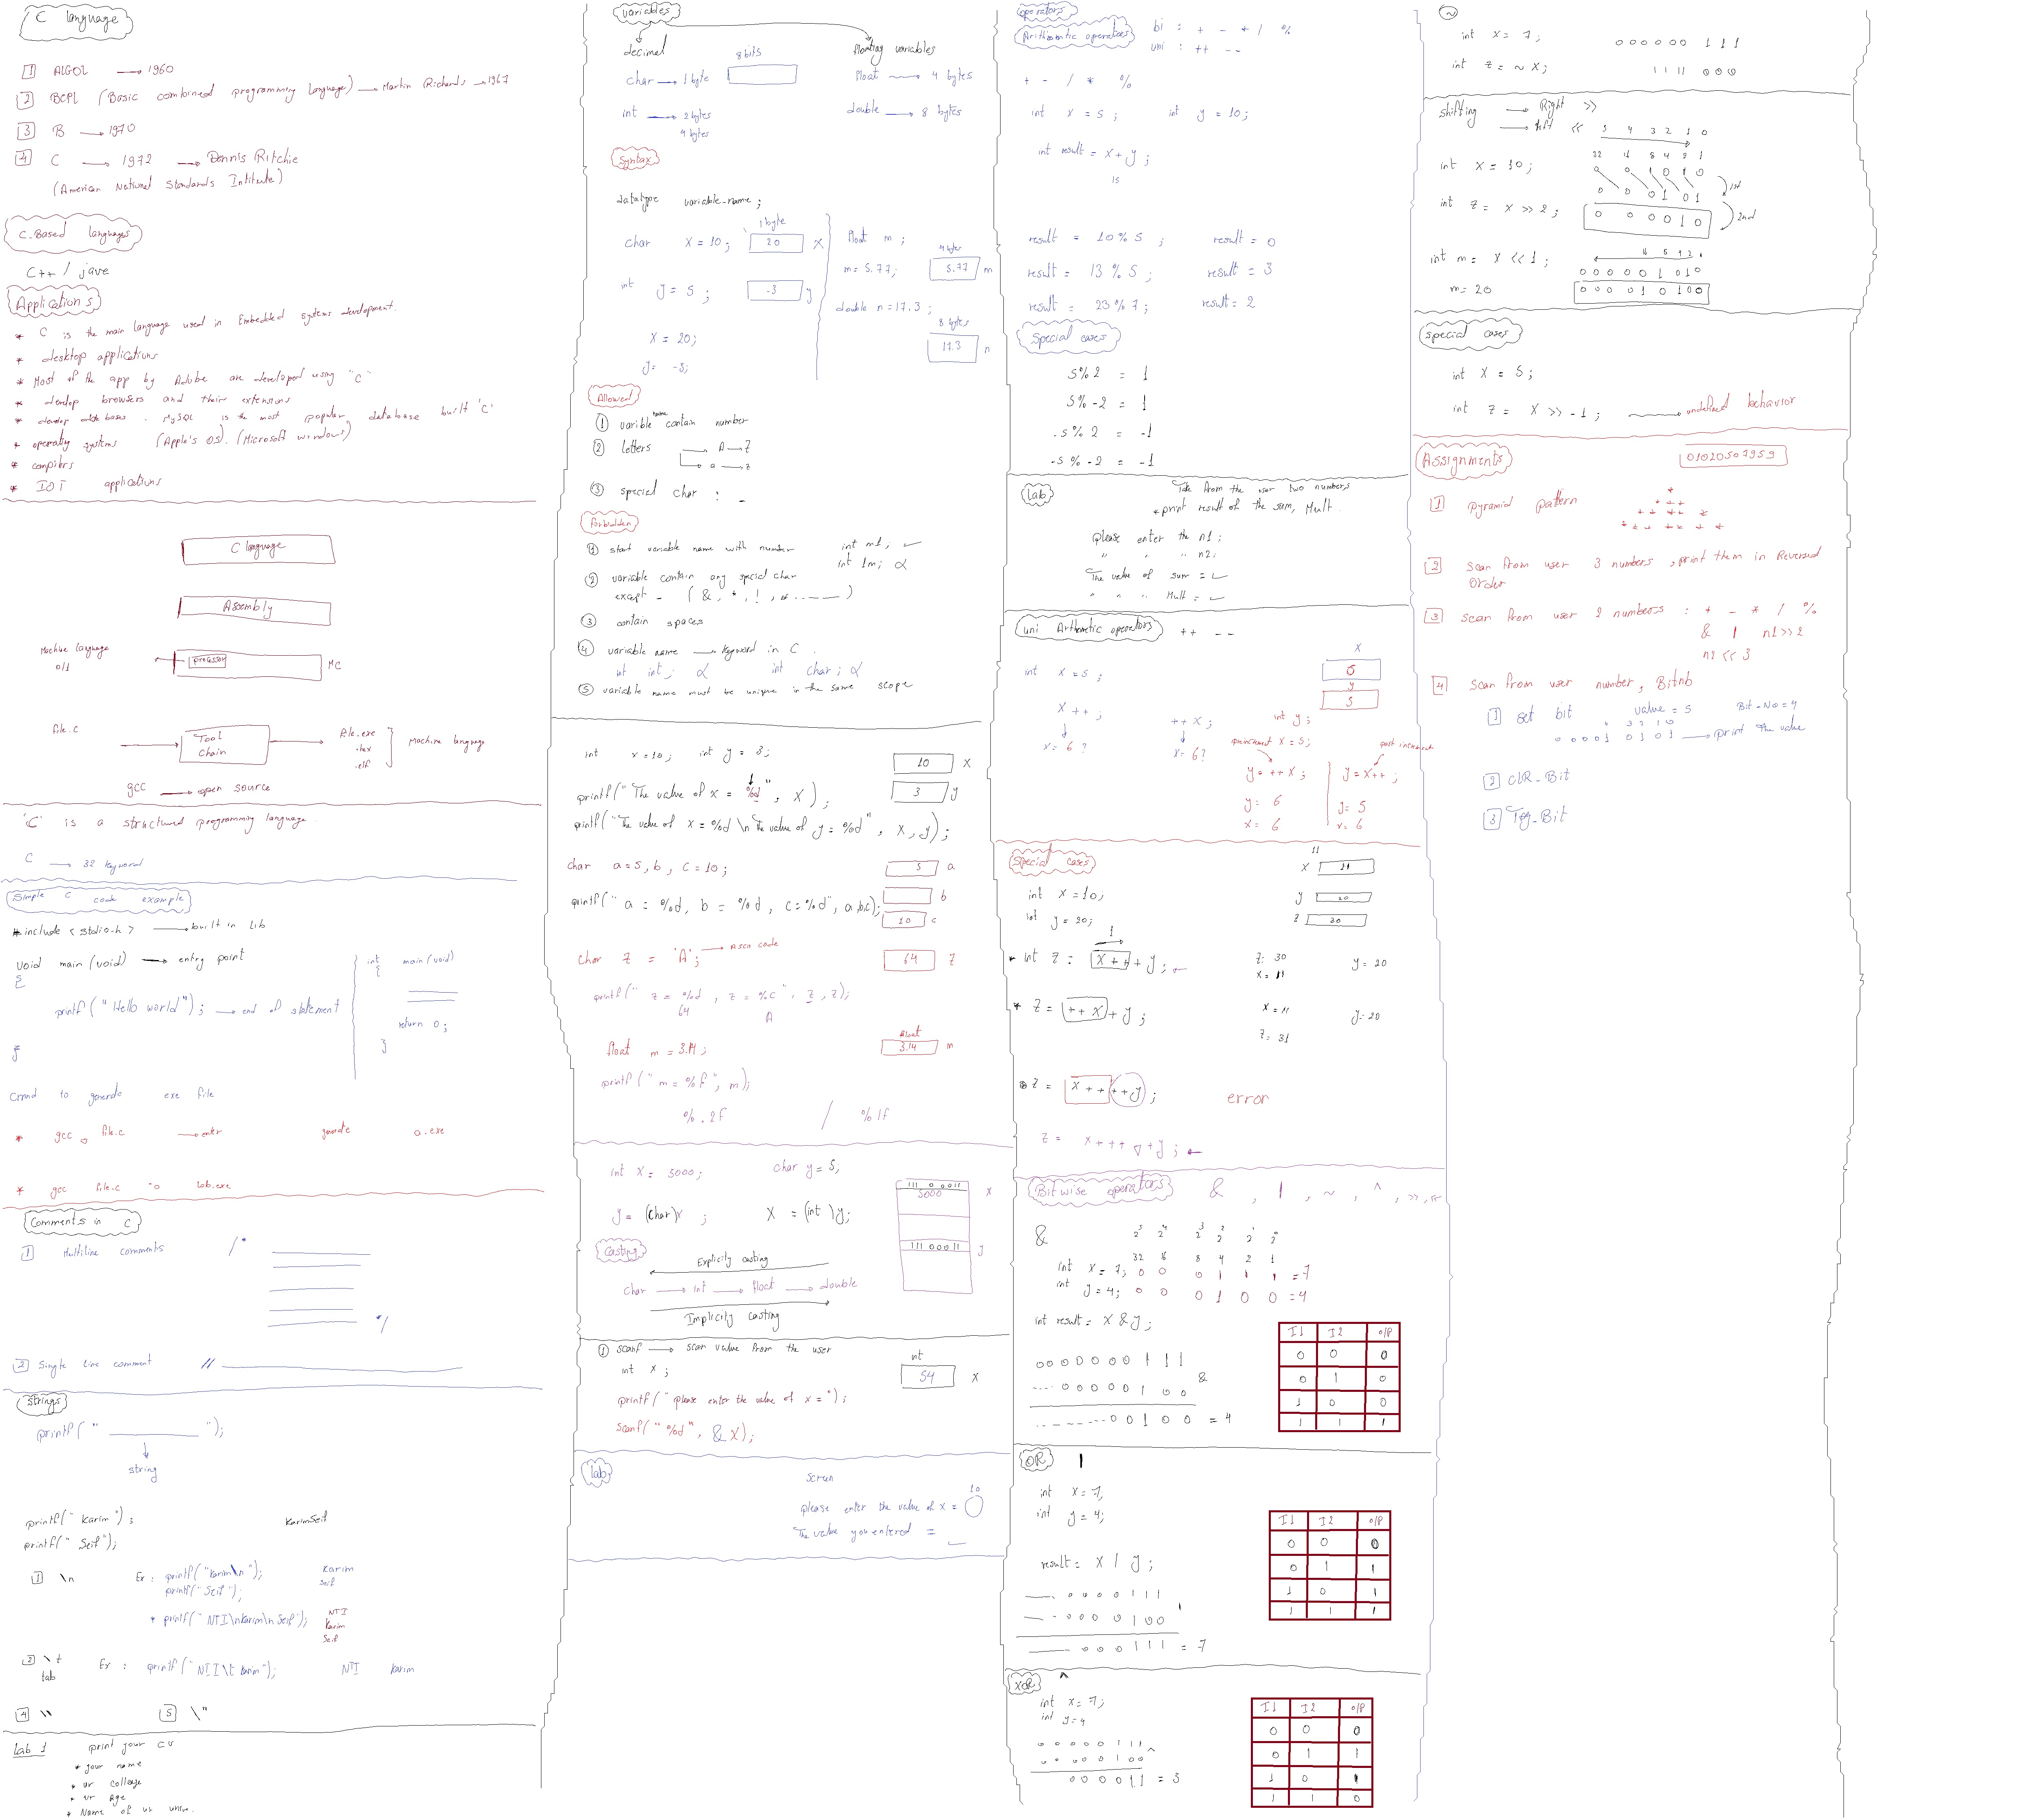 C language
1 ALGOL → 1960
2 BCPL (Basic combined programming language) → Martin Richards → 1967
3 B → 1970
4 C → 1972 → Dennis Ritchie
(American National Standards Institute)
C-Based languages
C++ / jave
Applications
* C is the main language used in Embedded systems development.
* desktop applications
* Most of the app by Adobe are developed using "C"
* develop browsers and their extensions
* develop data bases. MySQL is the most popular database built "C"
* operating systems (Apple's OS). (Microsoft windows)
* compilers
* IOT applications
C language
Assembly
Machine language
0/1
processor
MC
file.c
Tool
Chain
file.exe
.hex
.elf
Machine language
gcc → open source
"C" is a structured programming language.
C → 32 keyword
Simple C code example
#include <stdio.h> → built in Lib
void main (void) → entry point
{
printf ("Hello world"); → end of statement
}
int main (void)
{
return 0;
}
cmnd to generate exe file
* gcc file.c → enter generate a.exe
* gcc file.c -o Lab.exe
Comments in C
1 Multiline comments /* */
2 Single line comment //
Strings
printf(" ");
string
printf("Karim"); KarimSeif
printf("Seif");
1 \n Ex: printf("Karim\n"); Karim
printf("Seif"); Seif
* printf("NTI\nKarim\nSeif"); NTI
Karim
Seif
3 \t Ex: printf("NTI\t Karim"); NTI Karim
tab
4 \\ 5 \"
Lab 1 print your CV
* your name
* ur college
* ur age
* Name of ur univ.
variables
decimal 8bits floating variables
char → 1 byte float → 4 bytes
int → 2 bytes double → 8 bytes
4 bytes
Syntax
datatype variable-name;
1 byte
char x = 10; 20 x
int y = 5; -3 y
x = 20;
y = -3;
float m; 4 bytes
m = 5.77; 5.77 m
double n = 17.3;
8 bytes
17.3 n
Allowed
1 varible name contain number
2 letters → A → Z
→ a → z
3 special char : _
Forbidden
1 start variable name with number int m1; ✓
int 1m; α
2 variable contain any special char
except _ (&, *, !, # ......)
3 contain spaces
4 variable name → keyword in C.
int int; α int char; α
5 variable name must be unique in the same scope
int x = 10; int y = 3; 10 x
printf("The value of x = %d", x); 3 y
printf("The value of x = %d \n The value of y = %d", x, y);
char a = 5, b, c = 10; 5 a
b
printf(" a = %d, b = %d, c = %d", a,b,c); 10 c
char z = 'A'; → ASCII code 64 z
printf(" z = %d, z = %c", z, z);
64 A
float m = 3.14; float 3.14 m
printf(" m = %f", m);
%.2f / %lf
int x = 5000; char y = 5;
y = (char)x; x = (int)y;
111 0 0011
5000 x
111 00011 y
Casting
Explicity casting
char → int → float → double
Implicity casting
1 scanf → scan value from the user
int x; int 54 x
printf("please enter the value of x = ");
scanf("%d", &x);
lab
screen
please enter the value of x = 10
The value you entered =
operators
Arithmatic operators bi : + - * / %
uni : ++ --
+ - / * %
int x = 5; int y = 10;
int result = x + y;
15
result = 10 % 5; result = 0
result = 13 % 5; result = 3
result = 23 % 7; result = 2
Special cases
5 % 2 = 1
5 % -2 = 1
-5 % 2 = -1
-5 % -2 = -1
lab
Take from the user two numbers
* print result of the sum, Mult.
please enter the n1:
" " " n2:
The value of sum = ✓
" " " Mult = ✓
uni Arthmetic operators ++ --
int x = 5; x
x++; ++x; int y;
x = 6? x = 6?
preincrement x = 5; post increment
y = ++x; y = x++;
y = 6 y = 5
x = 6 x = 6
Special cases
int x = 10; x 11
int y = 20; y 20
z 30
* int z = x++ + y; z = 30 y = 20
x = 11
* z = ++x + y; x = 11 y = 20
z = 31
* z = x++ ++y; error
z = x+++ ++y;
Bitwise operators &, |, ~, ^, >>, <<
&
32 16 8 4 2 1
int x = 7; 0 0 0 1 1 1 = 7
int y = 4; 0 0 0 1 0 0 = 4
int result = x & y;
0 0 0 0 0 0 1 1 1
.... 0 0 0 0 0 1 0 0 &
........ 0 0 1 0 0 = 4
I1 I2 o/p
0 0 0
0 1 0
1 0 0
1 1 1
OR |
int x = 7;
int y = 4;
result = x | y;
0 0 0 0 1 1 1
0 0 0 0 1 0 0 |
0 0 0 1 1 1 = 7
I1 I2 o/p
0 0 0
0 1 1
1 0 1
1 1 1
XOR ^
int x = 7;
int y = 4
0 0 0 0 0 1 1 1
0 0 0 0 0 1 0 0 ^
0 0 0 0 1 1 = 3
I1 I2 o/p
0 0 0
0 1 1
1 0 1
1 1 0
~
int x = 7; 0 0 0 0 0 0 1 1 1
int z = ~x; 1 1 1 1 0 0 0
shifting → Right >>
→ left << 5 4 3 2 1 0
32 16 8 4 2 1
int x = 10; 0 0 1 0 1 0
1st
0 0 0 1 0 1
int z = x >> 2; 0 0 0 0 1 0 2nd
int m = x << 1;
0 0 0 0 0 1 0 1 0
m = 20 0 0 0 0 1 0 1 0 0
special cases
int x = 5;
int z = x >> -1; → undefined behavior
Assignments 01020507959
1 pyramid pattern
2 scan from user 3 numbers, print them in Reversed
Order
3 scan from user 2 numbers : + - * / %
& | n1 >> 2
n2 << 3
4 scan from user number, Bitnb
1 set bit value = 5 Bit-No = 4
4 3 2 1 0
0 0 0 0 1 0 1 0 1 → print the value
2 clR-Bit
3 Tog-Bit